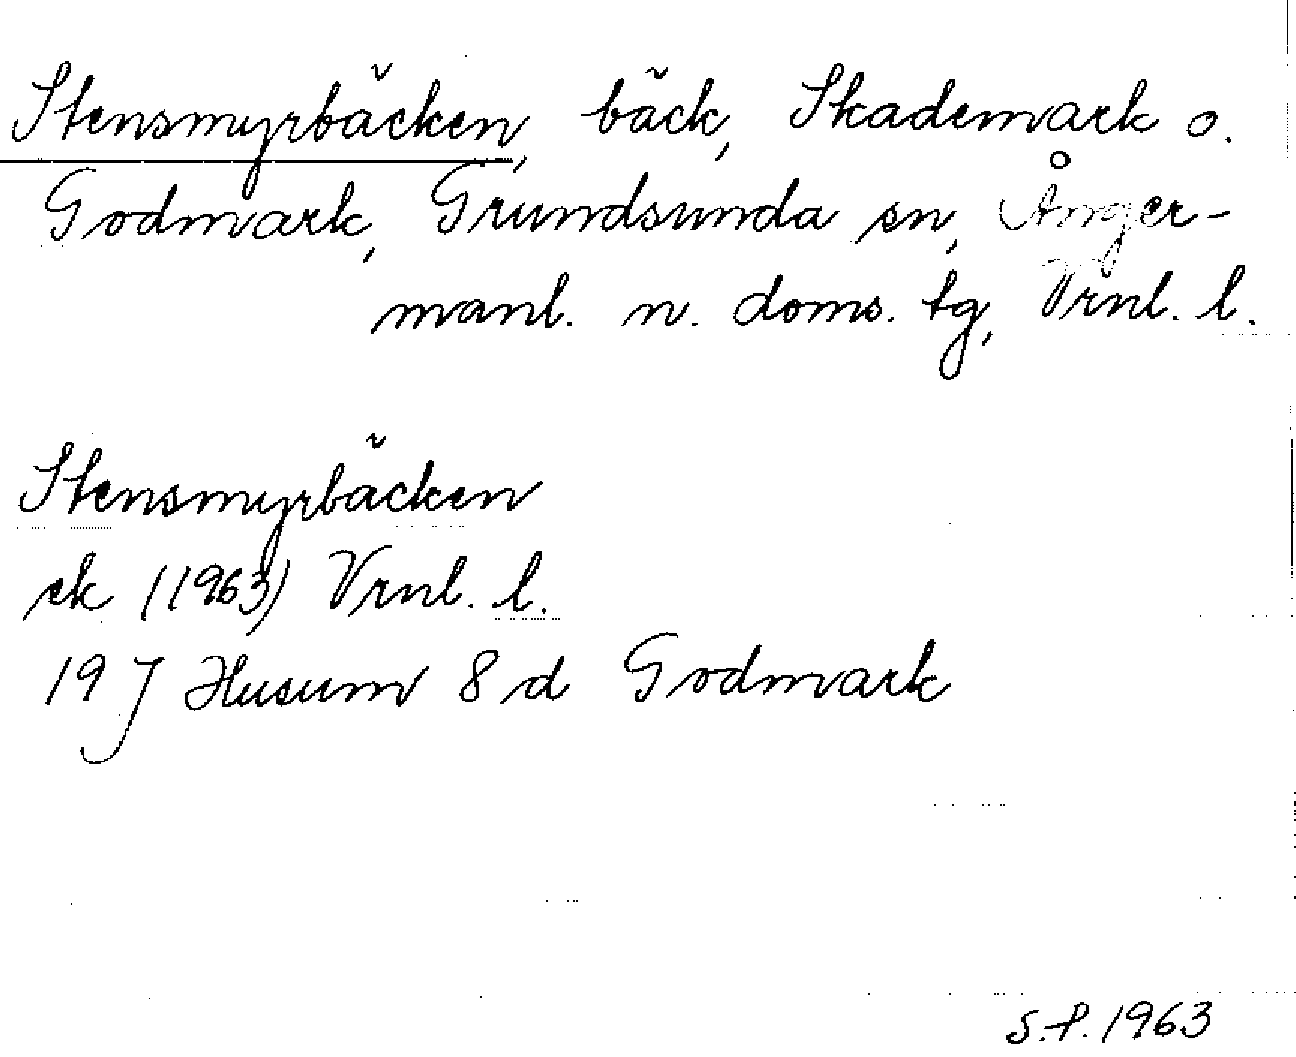 Stensmyrbäcken, bäck, Skademark o.
Godmark, Grundsunda sn, Ånger-
manl. n. doms. tg, Vrnl. l.
Stensmyrbäcken
ek (1963) Vrnl. l.
19 J Husum 8 d Godmark
S.P. 1963